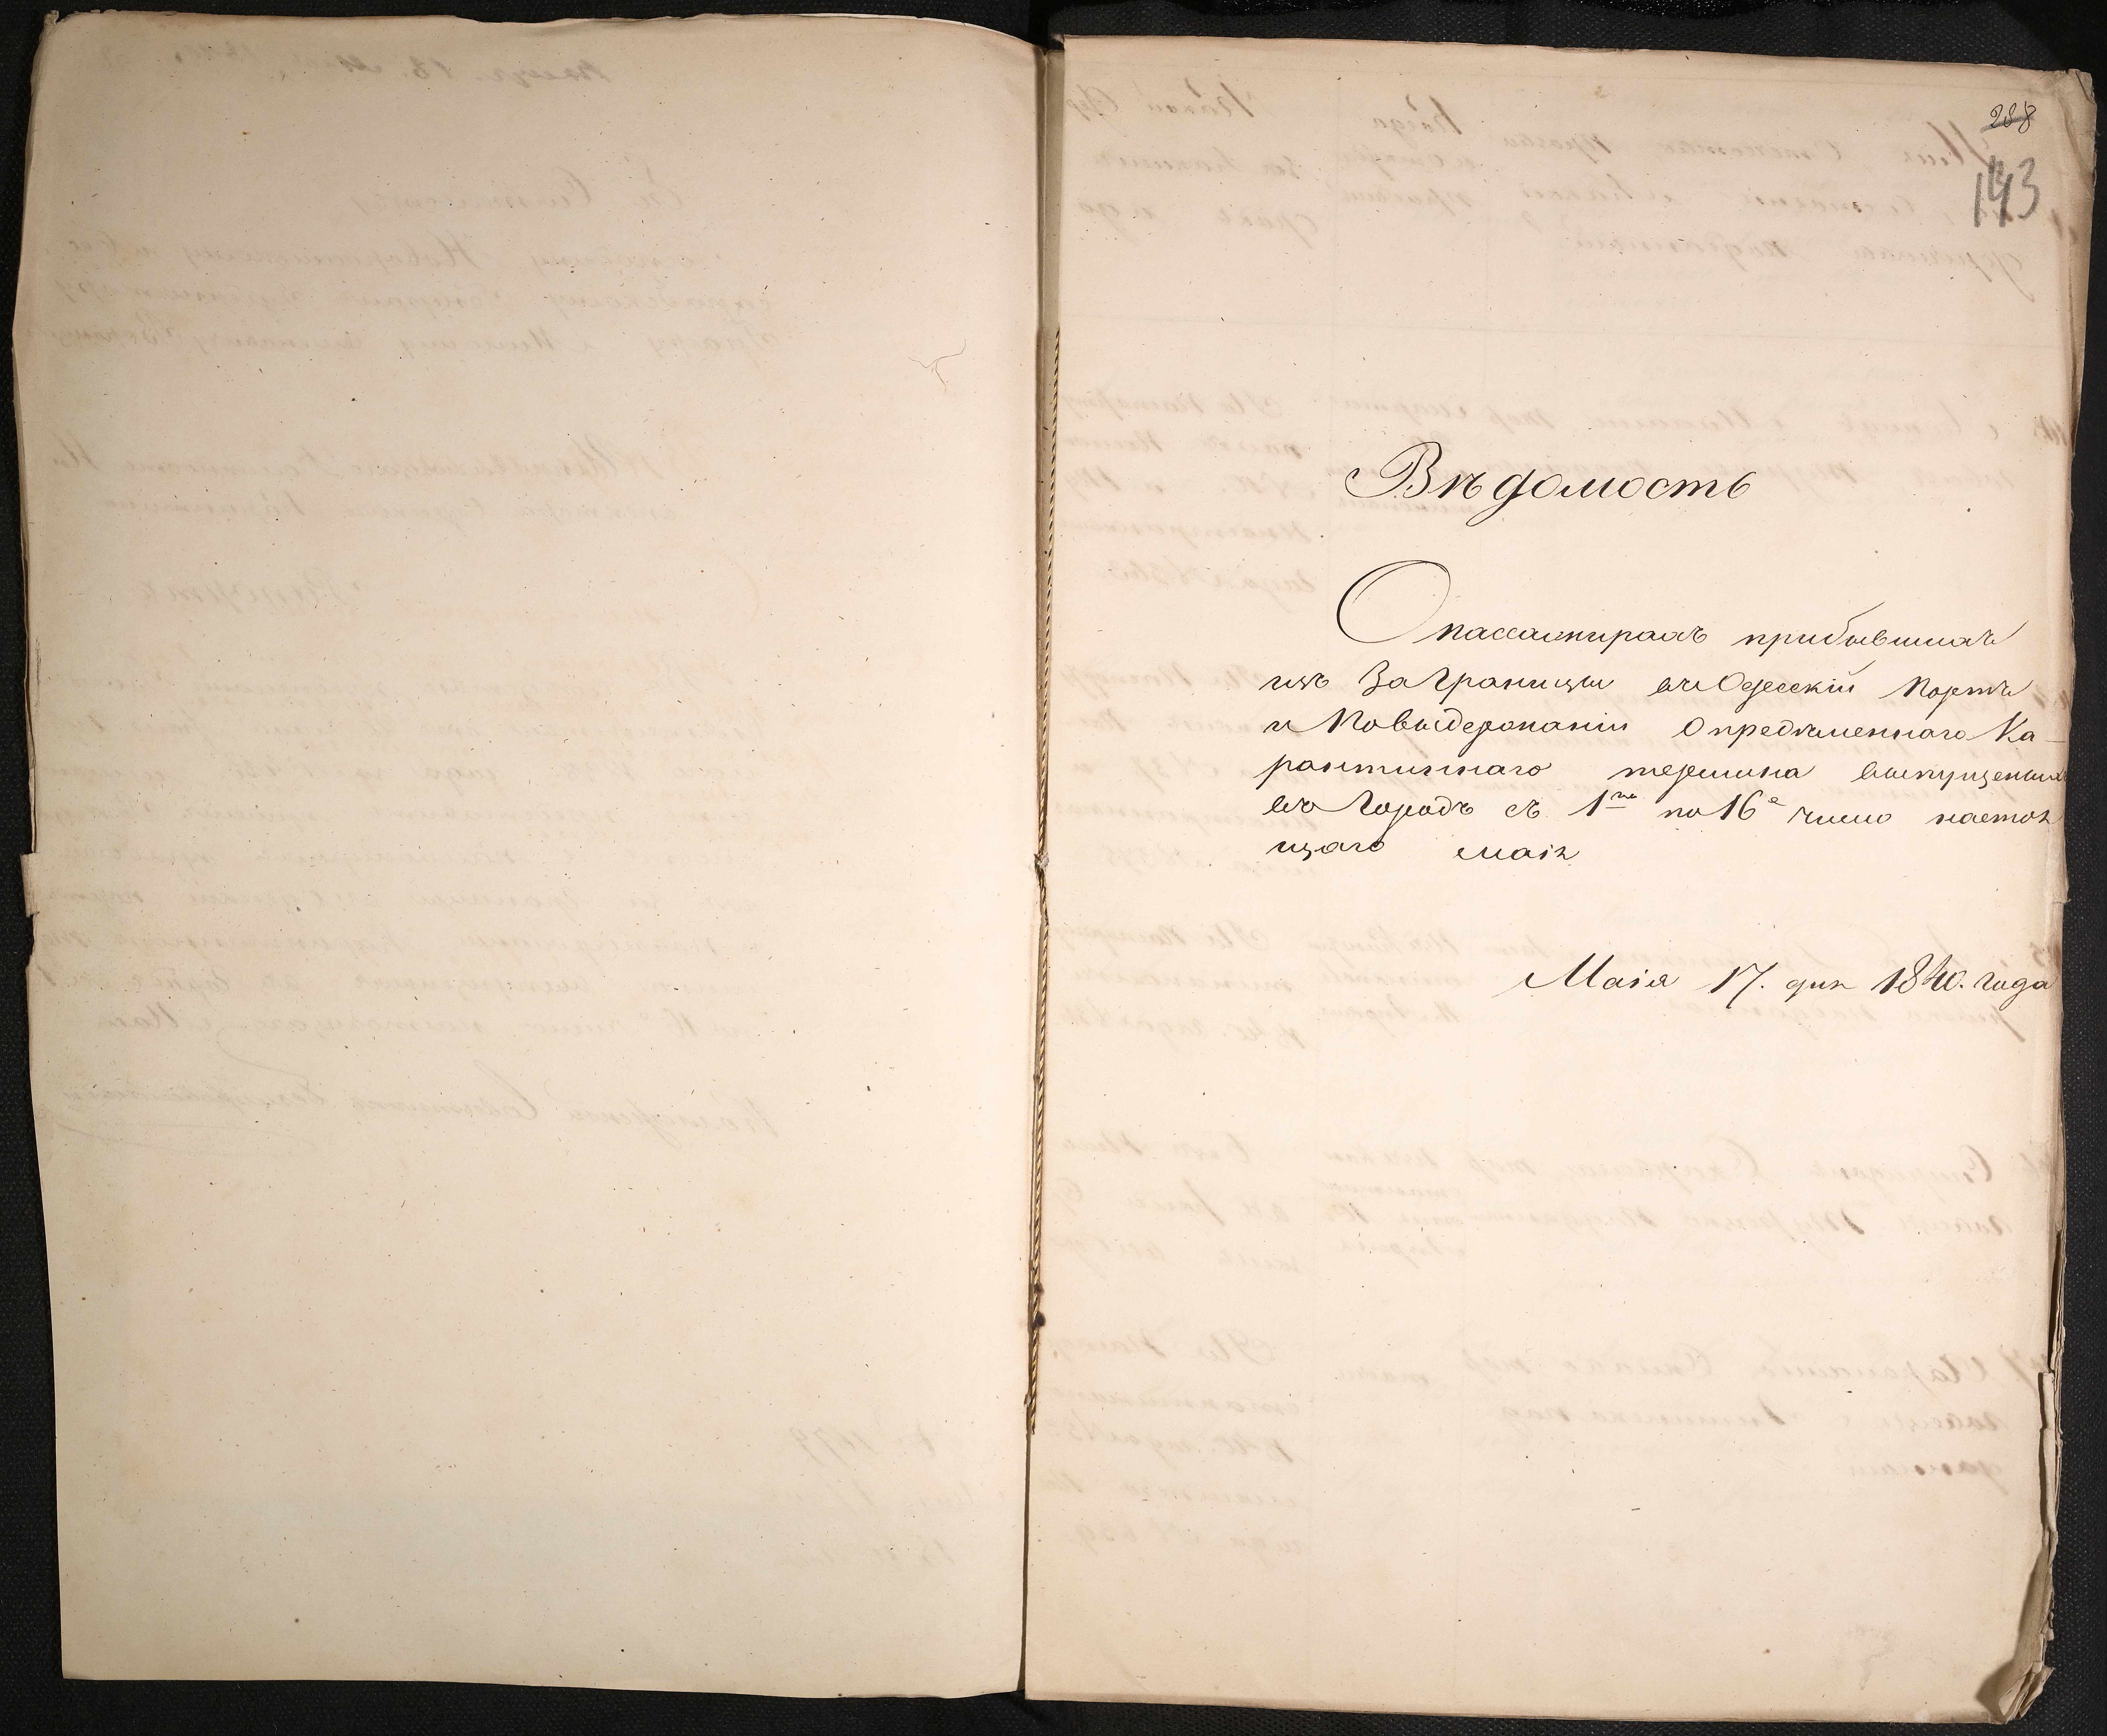 288
143
Вѣдомость
О пассажирахъ прибывшихъ
изъ Заграницы въ Одесскій Портъ
и Повыдержаніи Опредѣленнаго Ка-
рантиннаго термина выпущенных
въ Городъ съ 1го по 16е число настоя
щаго маія
Маія 17. дня 1840. года